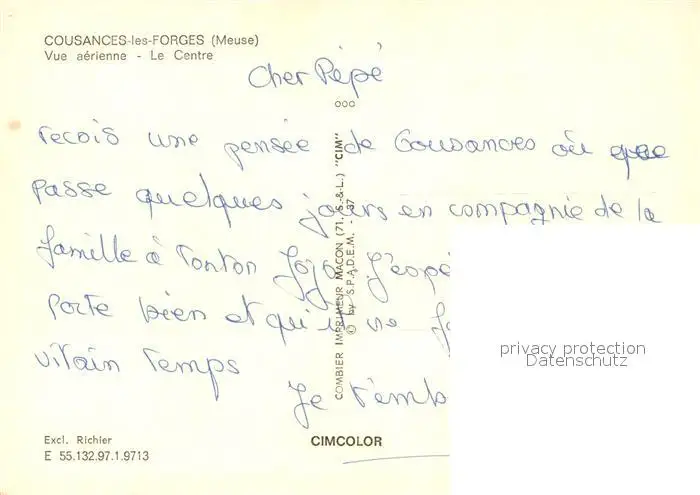 COUSANCES-les-FORGES (Meuse)
Vue aérienne - Le Centre
Cher Pépé
reçois une pensée de Cousances où
passe quelques jours en compagnie de la
famille à Tonton Jojo. J'espè
porte bien et qu'il ne
vilain temps
Je t'emb
COMBIER IMPRIMEUR MACON (71. S.-&-L.) "CIM"
© by S.P.A.D.E.M. - 87
privacy protection
Datenschutz
Excl. Richier
E 55.132.97.1.9713
CIMCOLOR